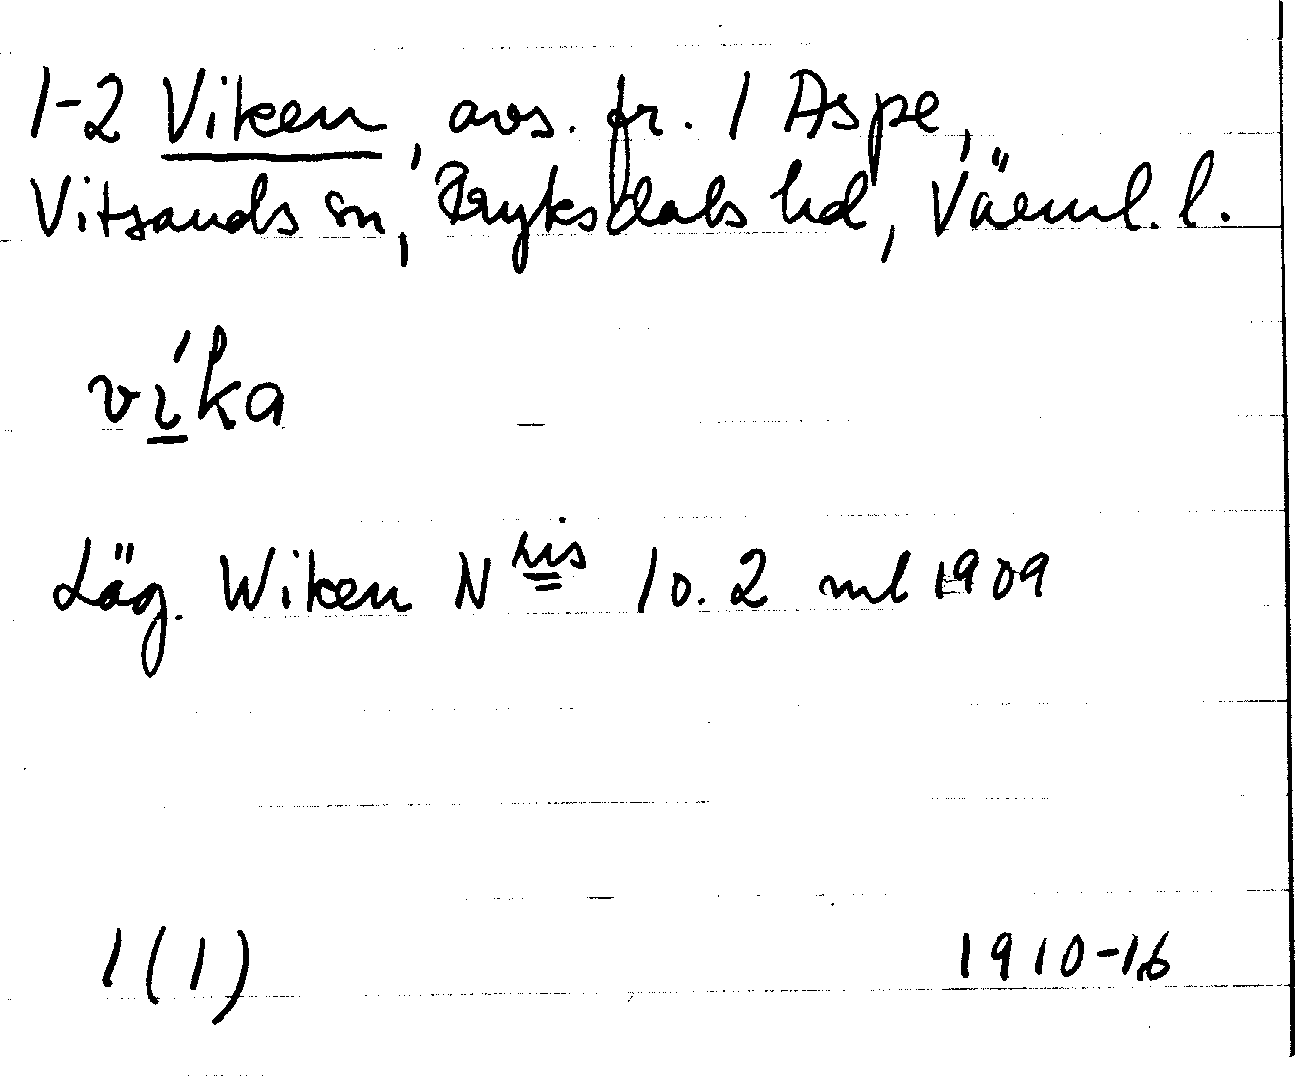 1-2 Viken, avs. fr. 1 Aspe,
Vitsands sn, Fryksdals hd, Värml. l.
víka
Läg. Wiken N ris 1 o. 2 ml 1909
1(1) 1910-16